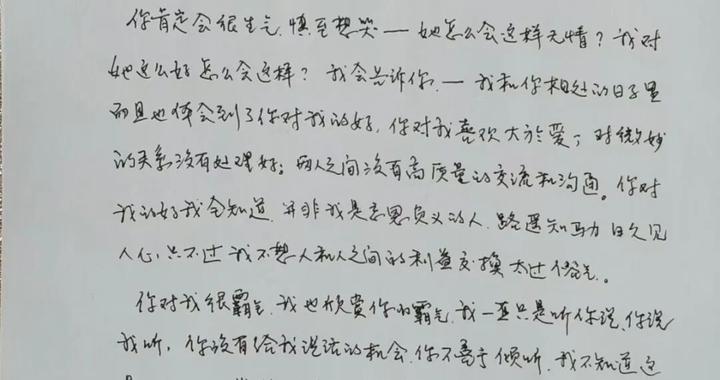 你肯定会很生气,慎至想哭——她怎么会这样无情?我对
她这么好怎么会这样?我会告诉你.——我和你相处的日子里
而且也体会到了你对我的好,你对我喜欢大於爱,对微妙
的关系没有处理好;两人之间没有高质量的交流和沟通。你对
我的好我全知道,并非我是忘恩负义的人,路遥知马力日久见
人心,只不过我不想人和人之间的利益交换太过俗气。
你对我很霸气,我也欣赏你的霸气,我一直只是听你说,你说
我听,你没有给我说话的机会,你不善于倾听,我不知道这